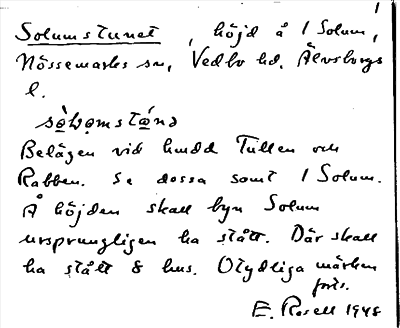 1
Solumstunet, höjd å 1 Solum,
Nössemarks sn, Vedbo hd. Älvsborgs
l.
Belägen vid hudd Tullen och
Rabben. Se dessa samt 1 Solum.
Å höjden skall byn Solum
ursprungligen ha stått. Där skall
ha stått 8 hus. Otydliga märken
forts.
E. Rosell 1948